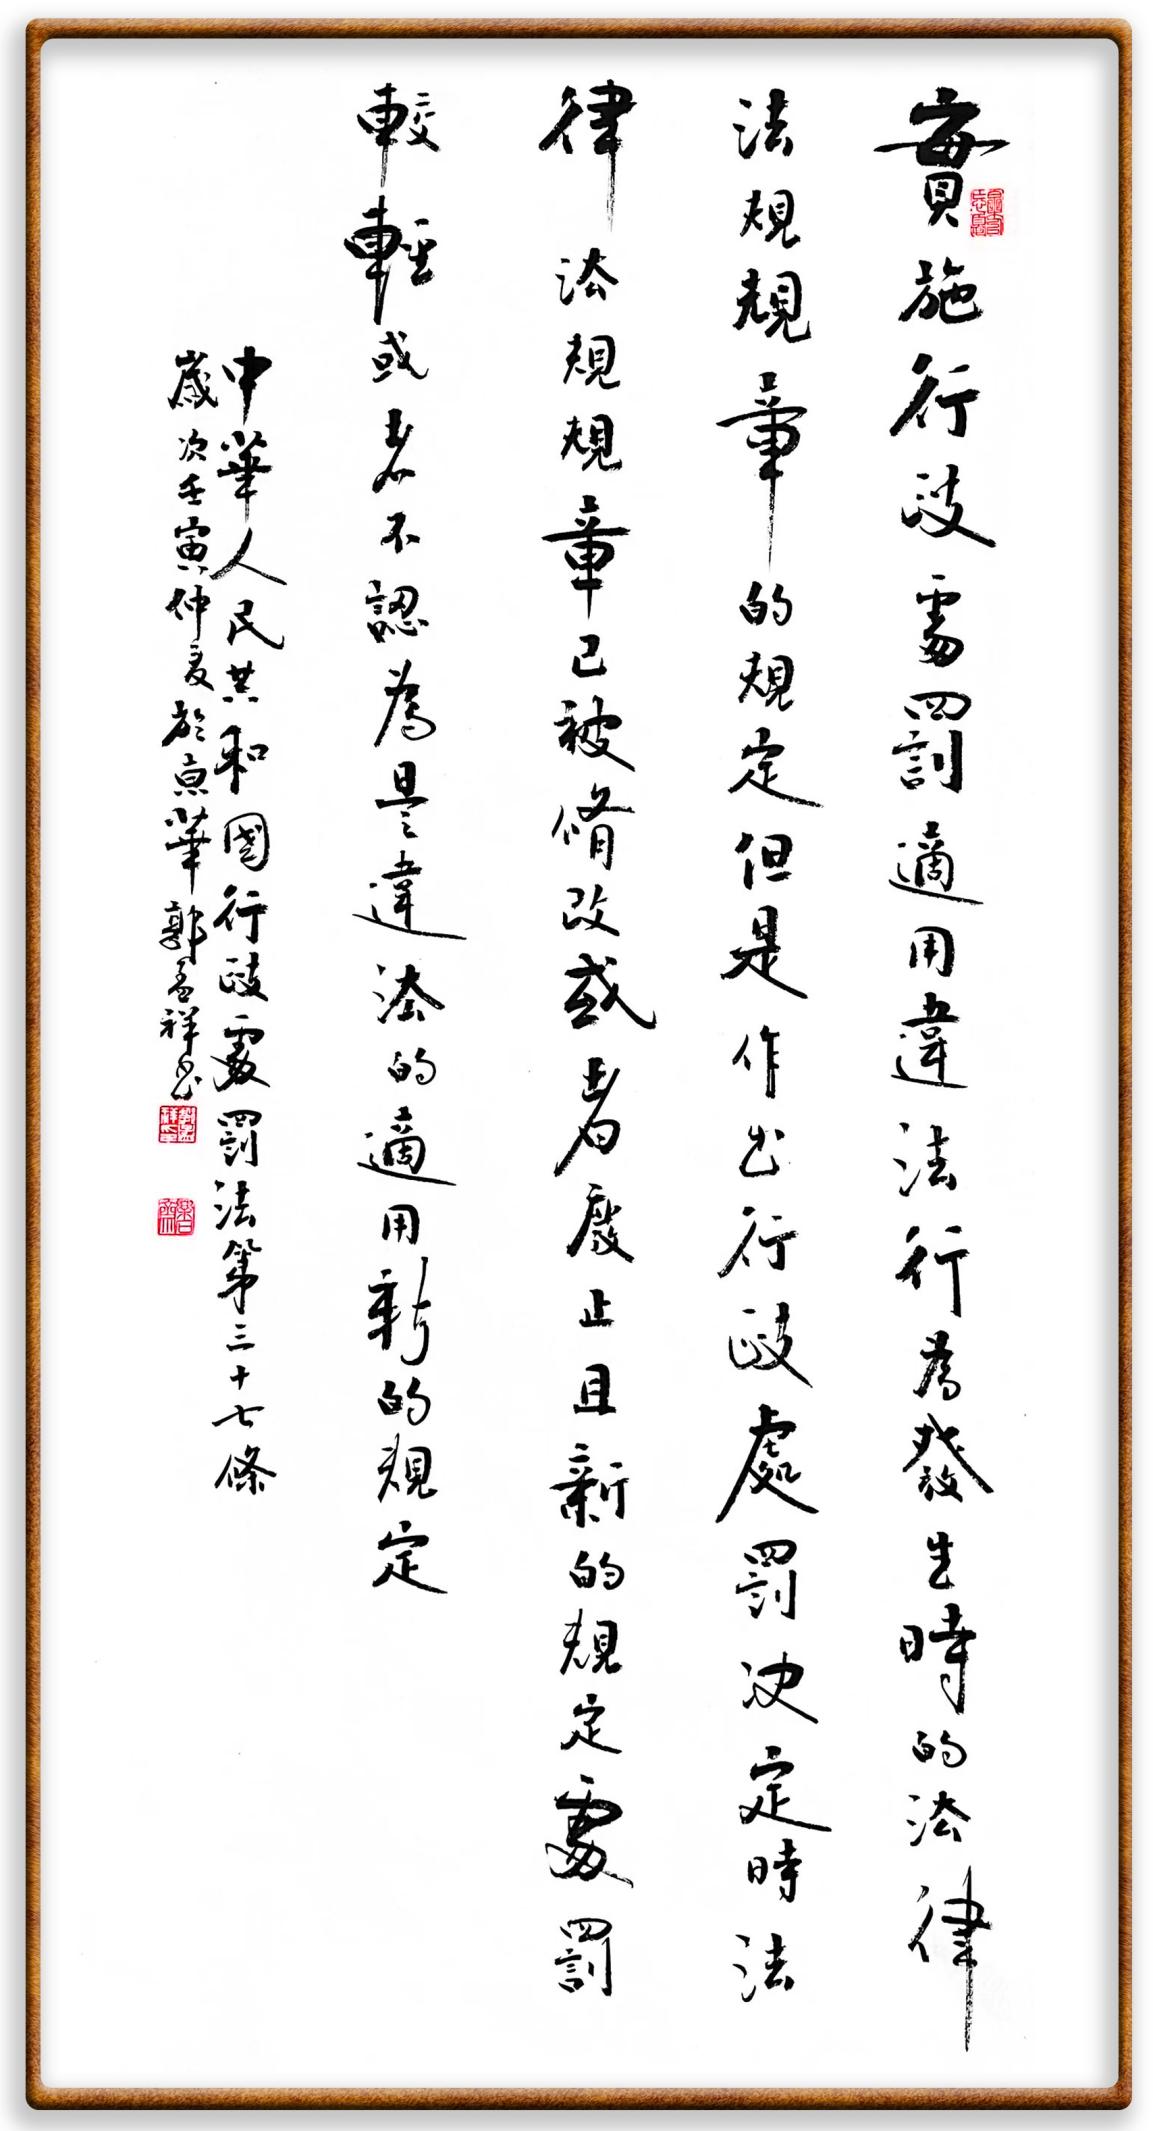 實施行政處罰適用違法行為發生時的法律
法規規章的規定但是作出行政處罰決定時法
律法規規章已被脩改或者廢止且新的規定處罰
較輕或者不認為是違法的適用新的規定
中華人民共和國行政處罰法第三十七條
歲次壬寅仲夏於京華郭孟祥書